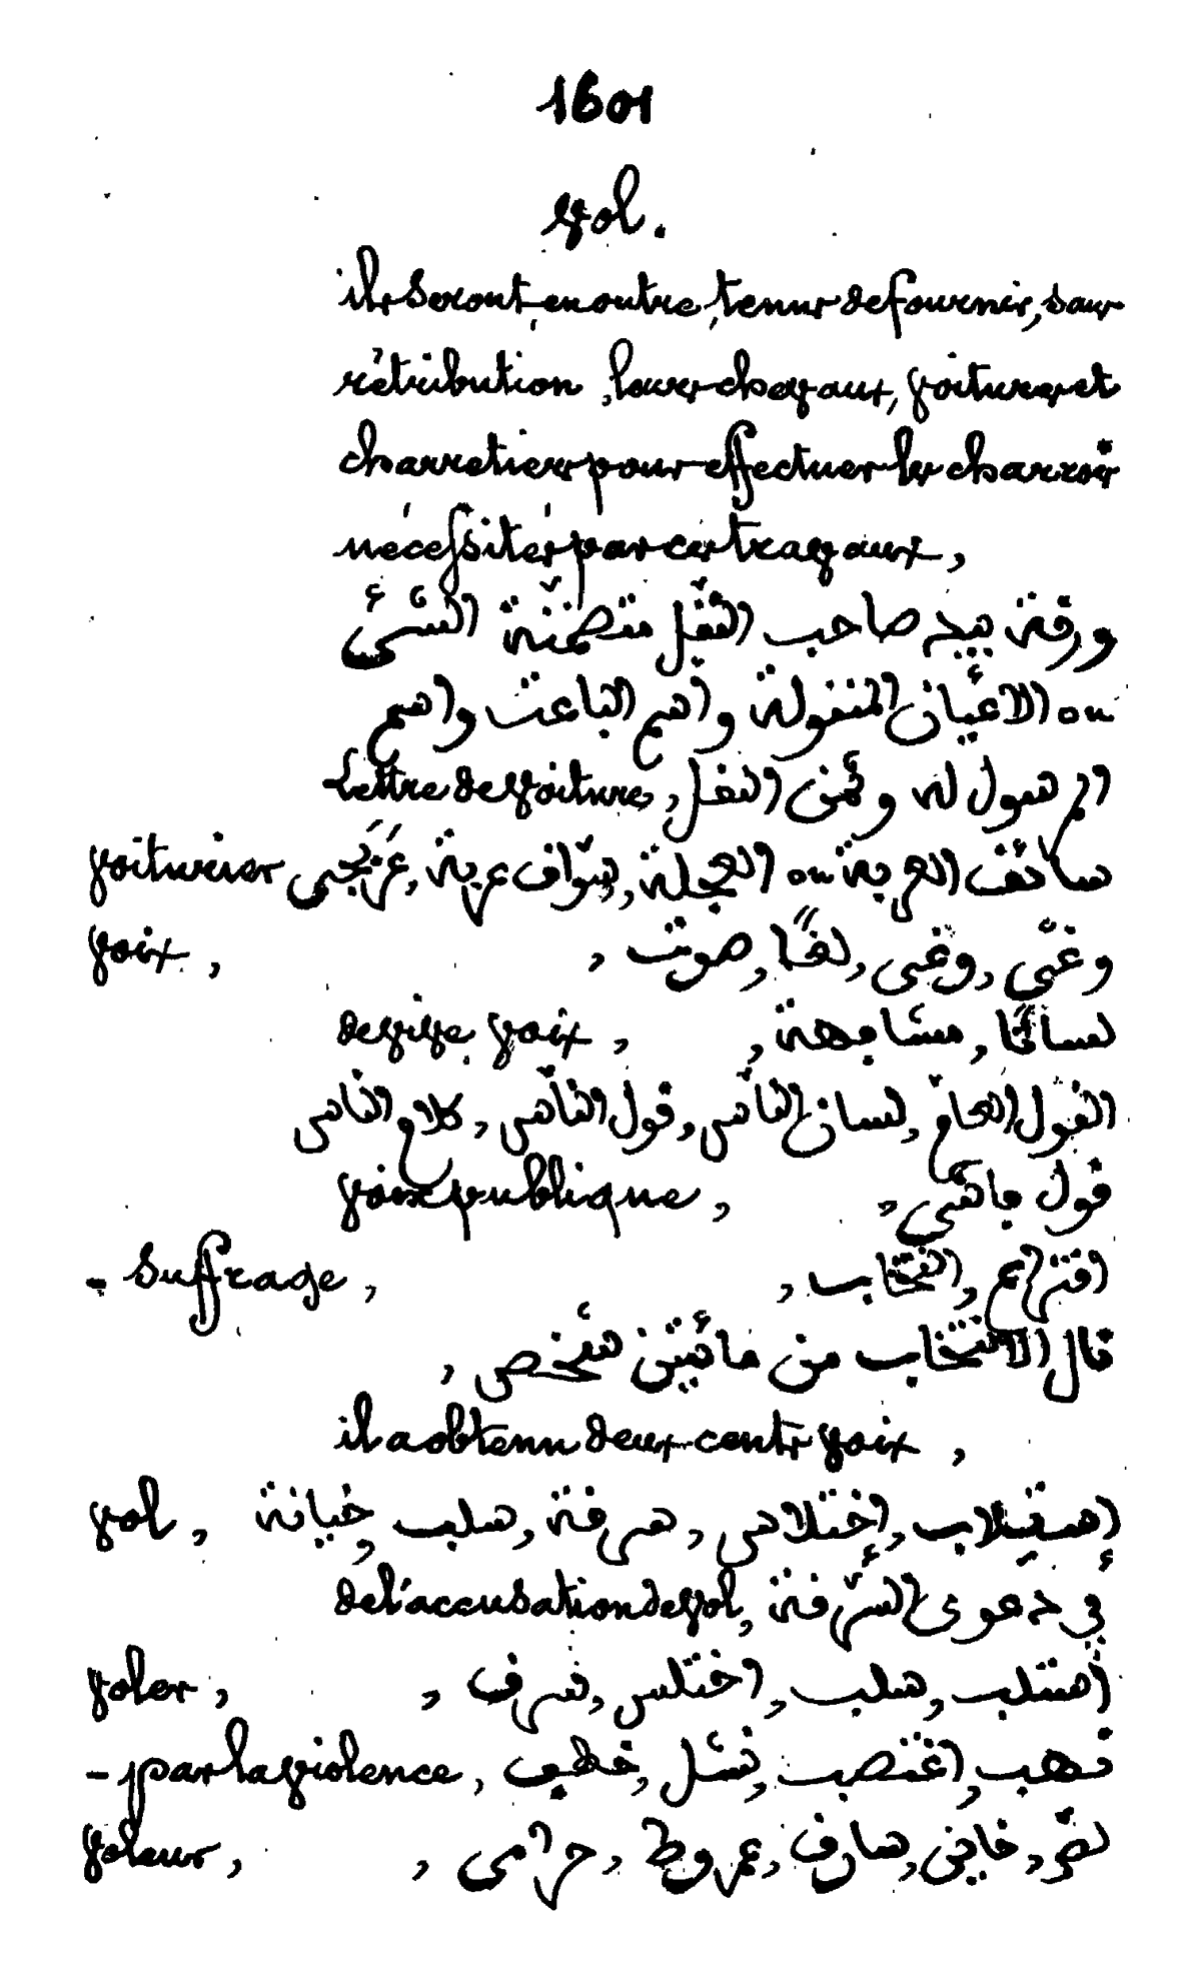 1601
Vol.
ils seront, en outre, tenus de fournir, sans
rétribution, leurs chevaux, voitures et
charretiers pour effectuer les charrois
nécessités par ces travaux,
ورقة بيد صاحب النّقل متضمّنة الشّئ
ou الاعيان المنقولة واسم الباعث واسم
المرسول له وثمن النقل, Lettre de voiture,
سائق العربة ou العجلة, سوّاق عربة, عَرَبجى voiturier
وغّى, وغى, لغًا, صوت, voix,
لسانًا, مشابهة, de vive voix,
القول العامّ, لسان النّاس, قول النّاس, كلام الناس
قول جاشى, voix publique,
اقتراع, انتخاب, - suffrage,
نال الانتخاب من مائتين شخص,
il a obtenu deux-cents voix,
إستلاب, إختلاس, سرقة, سلب, خيانة, vol,
في دعوى السّرقة, de l'accusation de vol,
إستلب, سلب, اختلس, سرق, voler,
نهب, اغتصب, نشل, خطف, - par la violence,
لصّ, خاين, سارق, عمروط, حرامى, voleur,